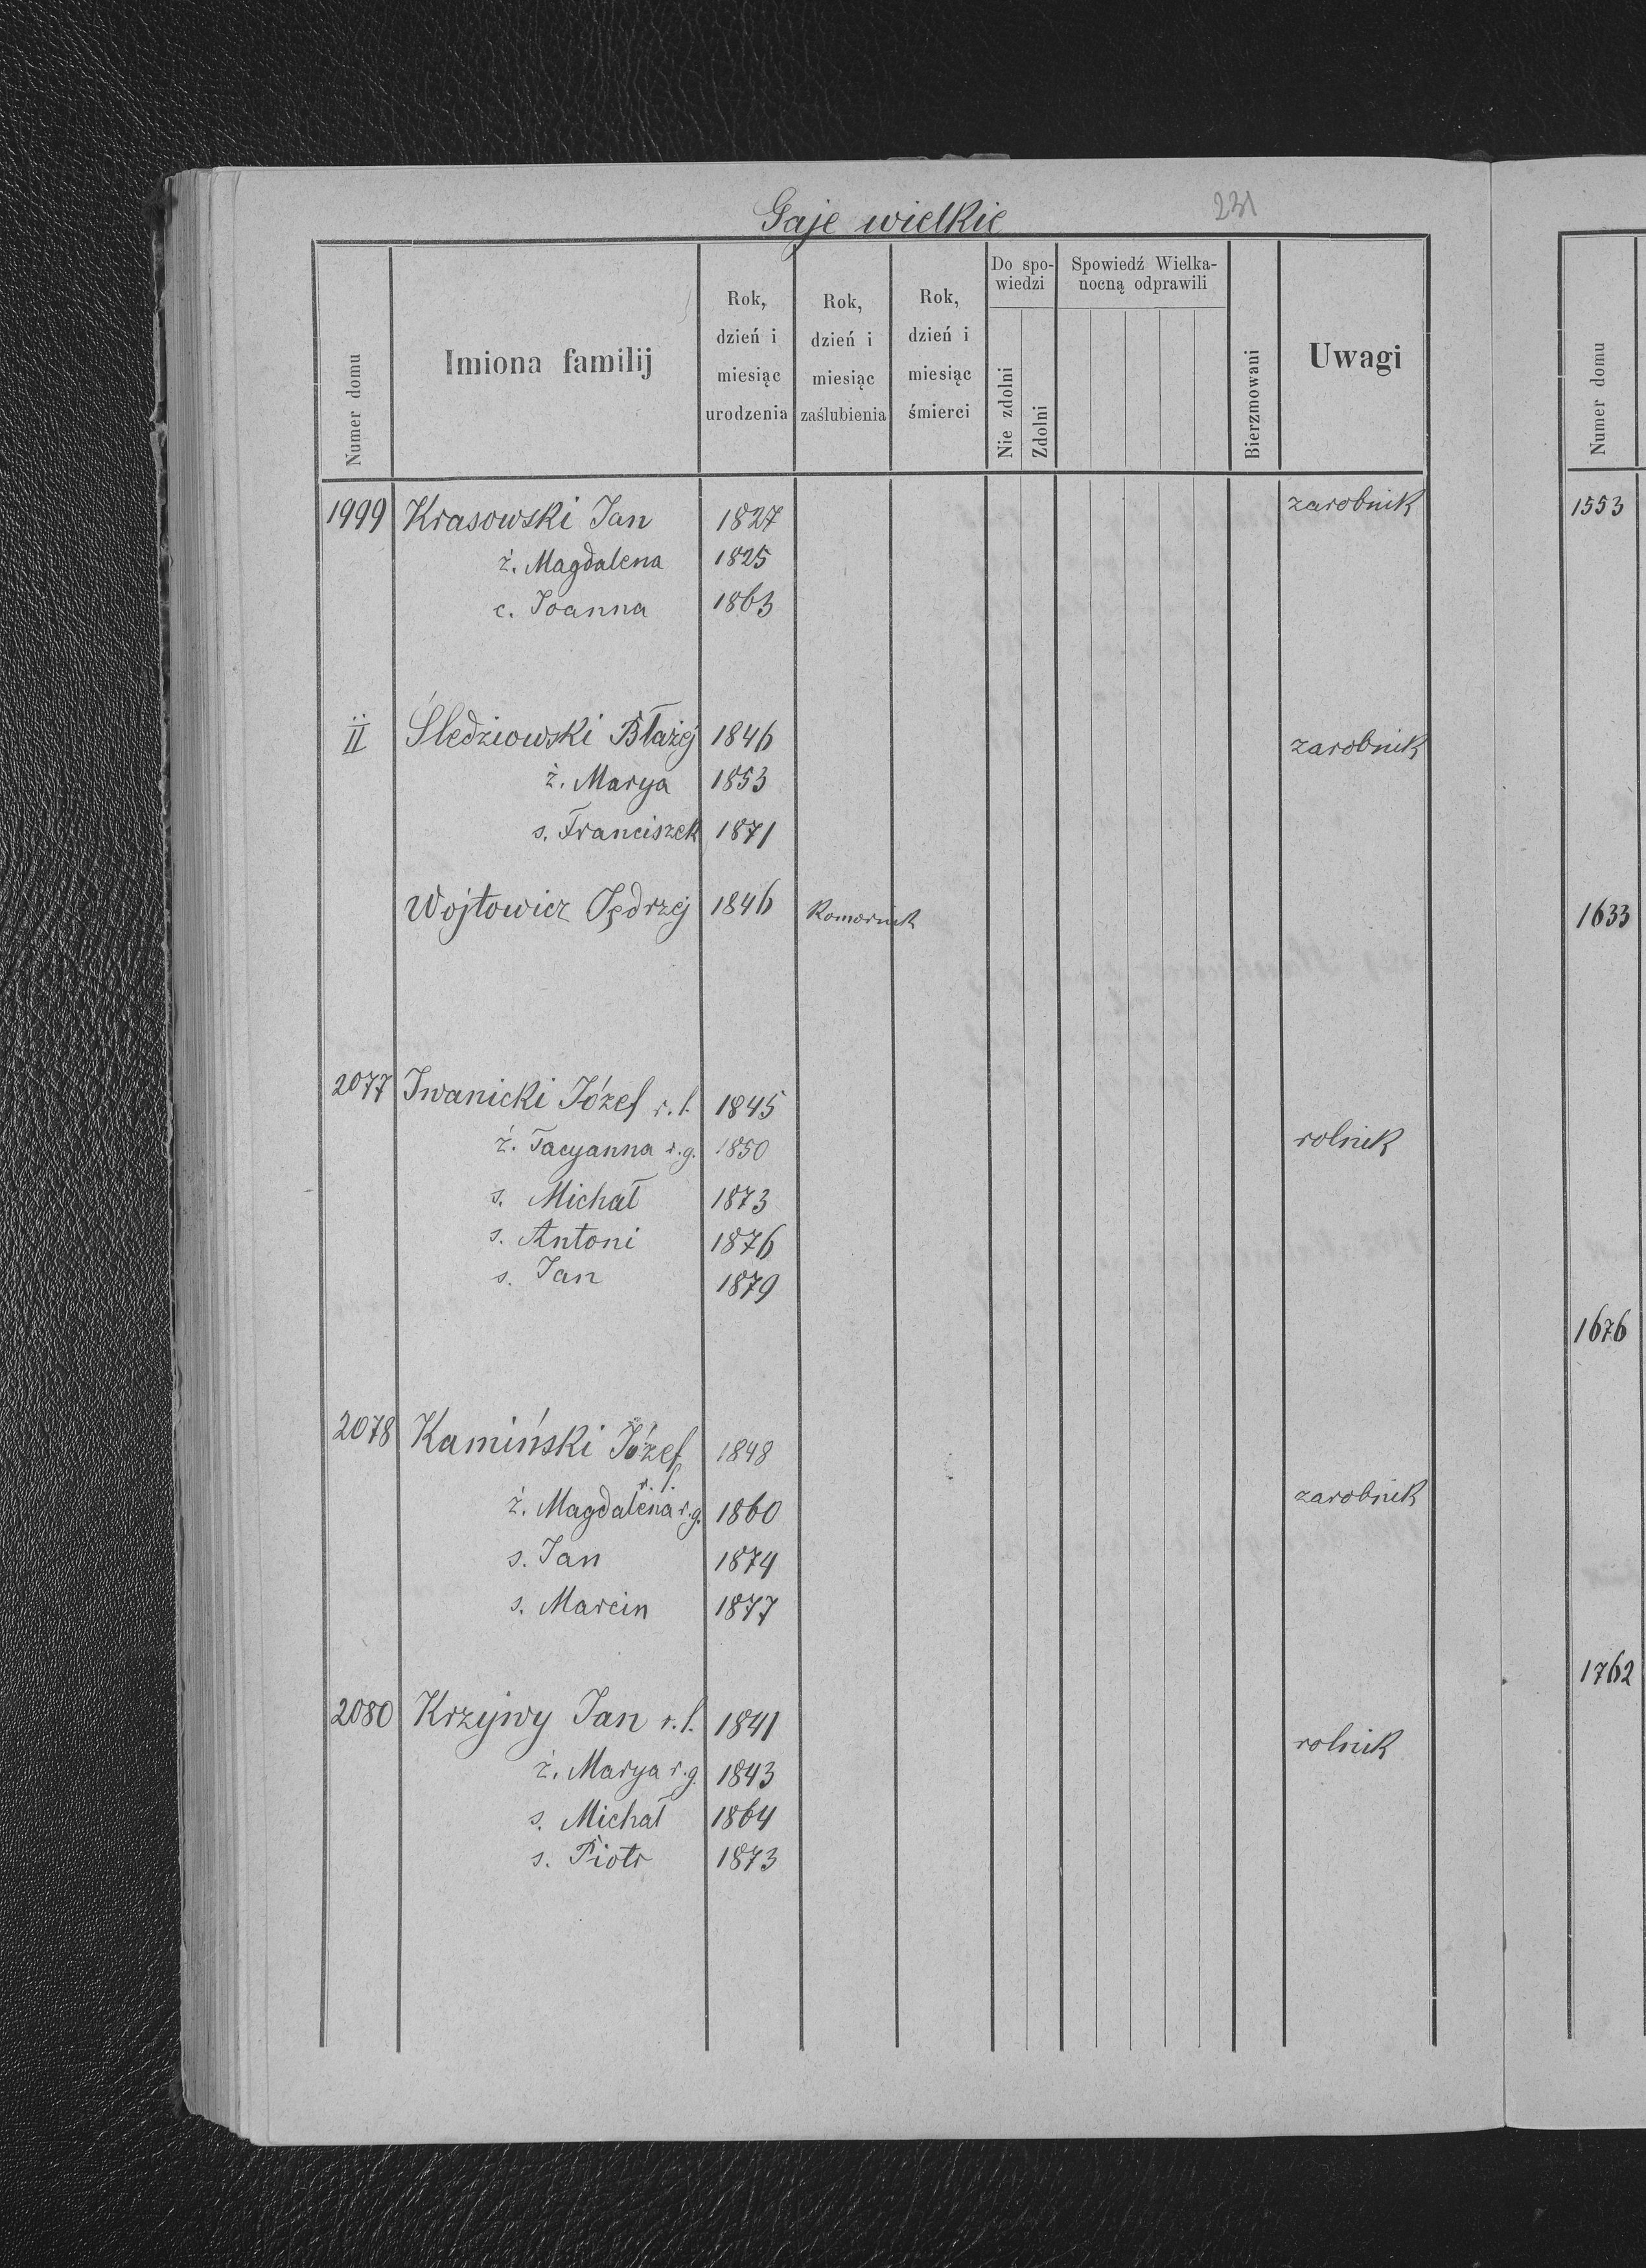 Gaje wielkie 231
Numer domu | Imiona familij | Rok, dzień i miesiąc urodzenia | Rok, dzień i miesiąc zaślubienia | Rok, dzień i miesiąc śmierci | Do spo-wiedzi | Nie zdolni | Zdolni | Spowiedź Wielka-nocną odprawili | Bierzmowani | Uwagi
1999 Krasowski Jan 1827 zarobnik
ż. Magdalena 1825
c. Joanna 1863
II Śledziowski Błażej 1846 zarobnik
ż. Marya 1853
s. Franciszek 1871
Wojtowicz Jędrzej 1846 Komornik
2077 Iwanicki Józef r.l. 1845
ż. Tacyanna r.g. 1850 rolnik
s. Michał 1873
s. Antoni 1876
s. Jan 1879
2078 Kamiński Józef 1848
r.l.
ż. Magdalena r.g. 1860 zarobnik
s. Jan 1874
s. Marcin 1877
2080 Krzyjwy Jan r.l. 1841
ż. Marya r.g. 1843 rolnik
s. Michał 1864
s. Piotr 1873
Numer domu
1553
1633
1676
1762